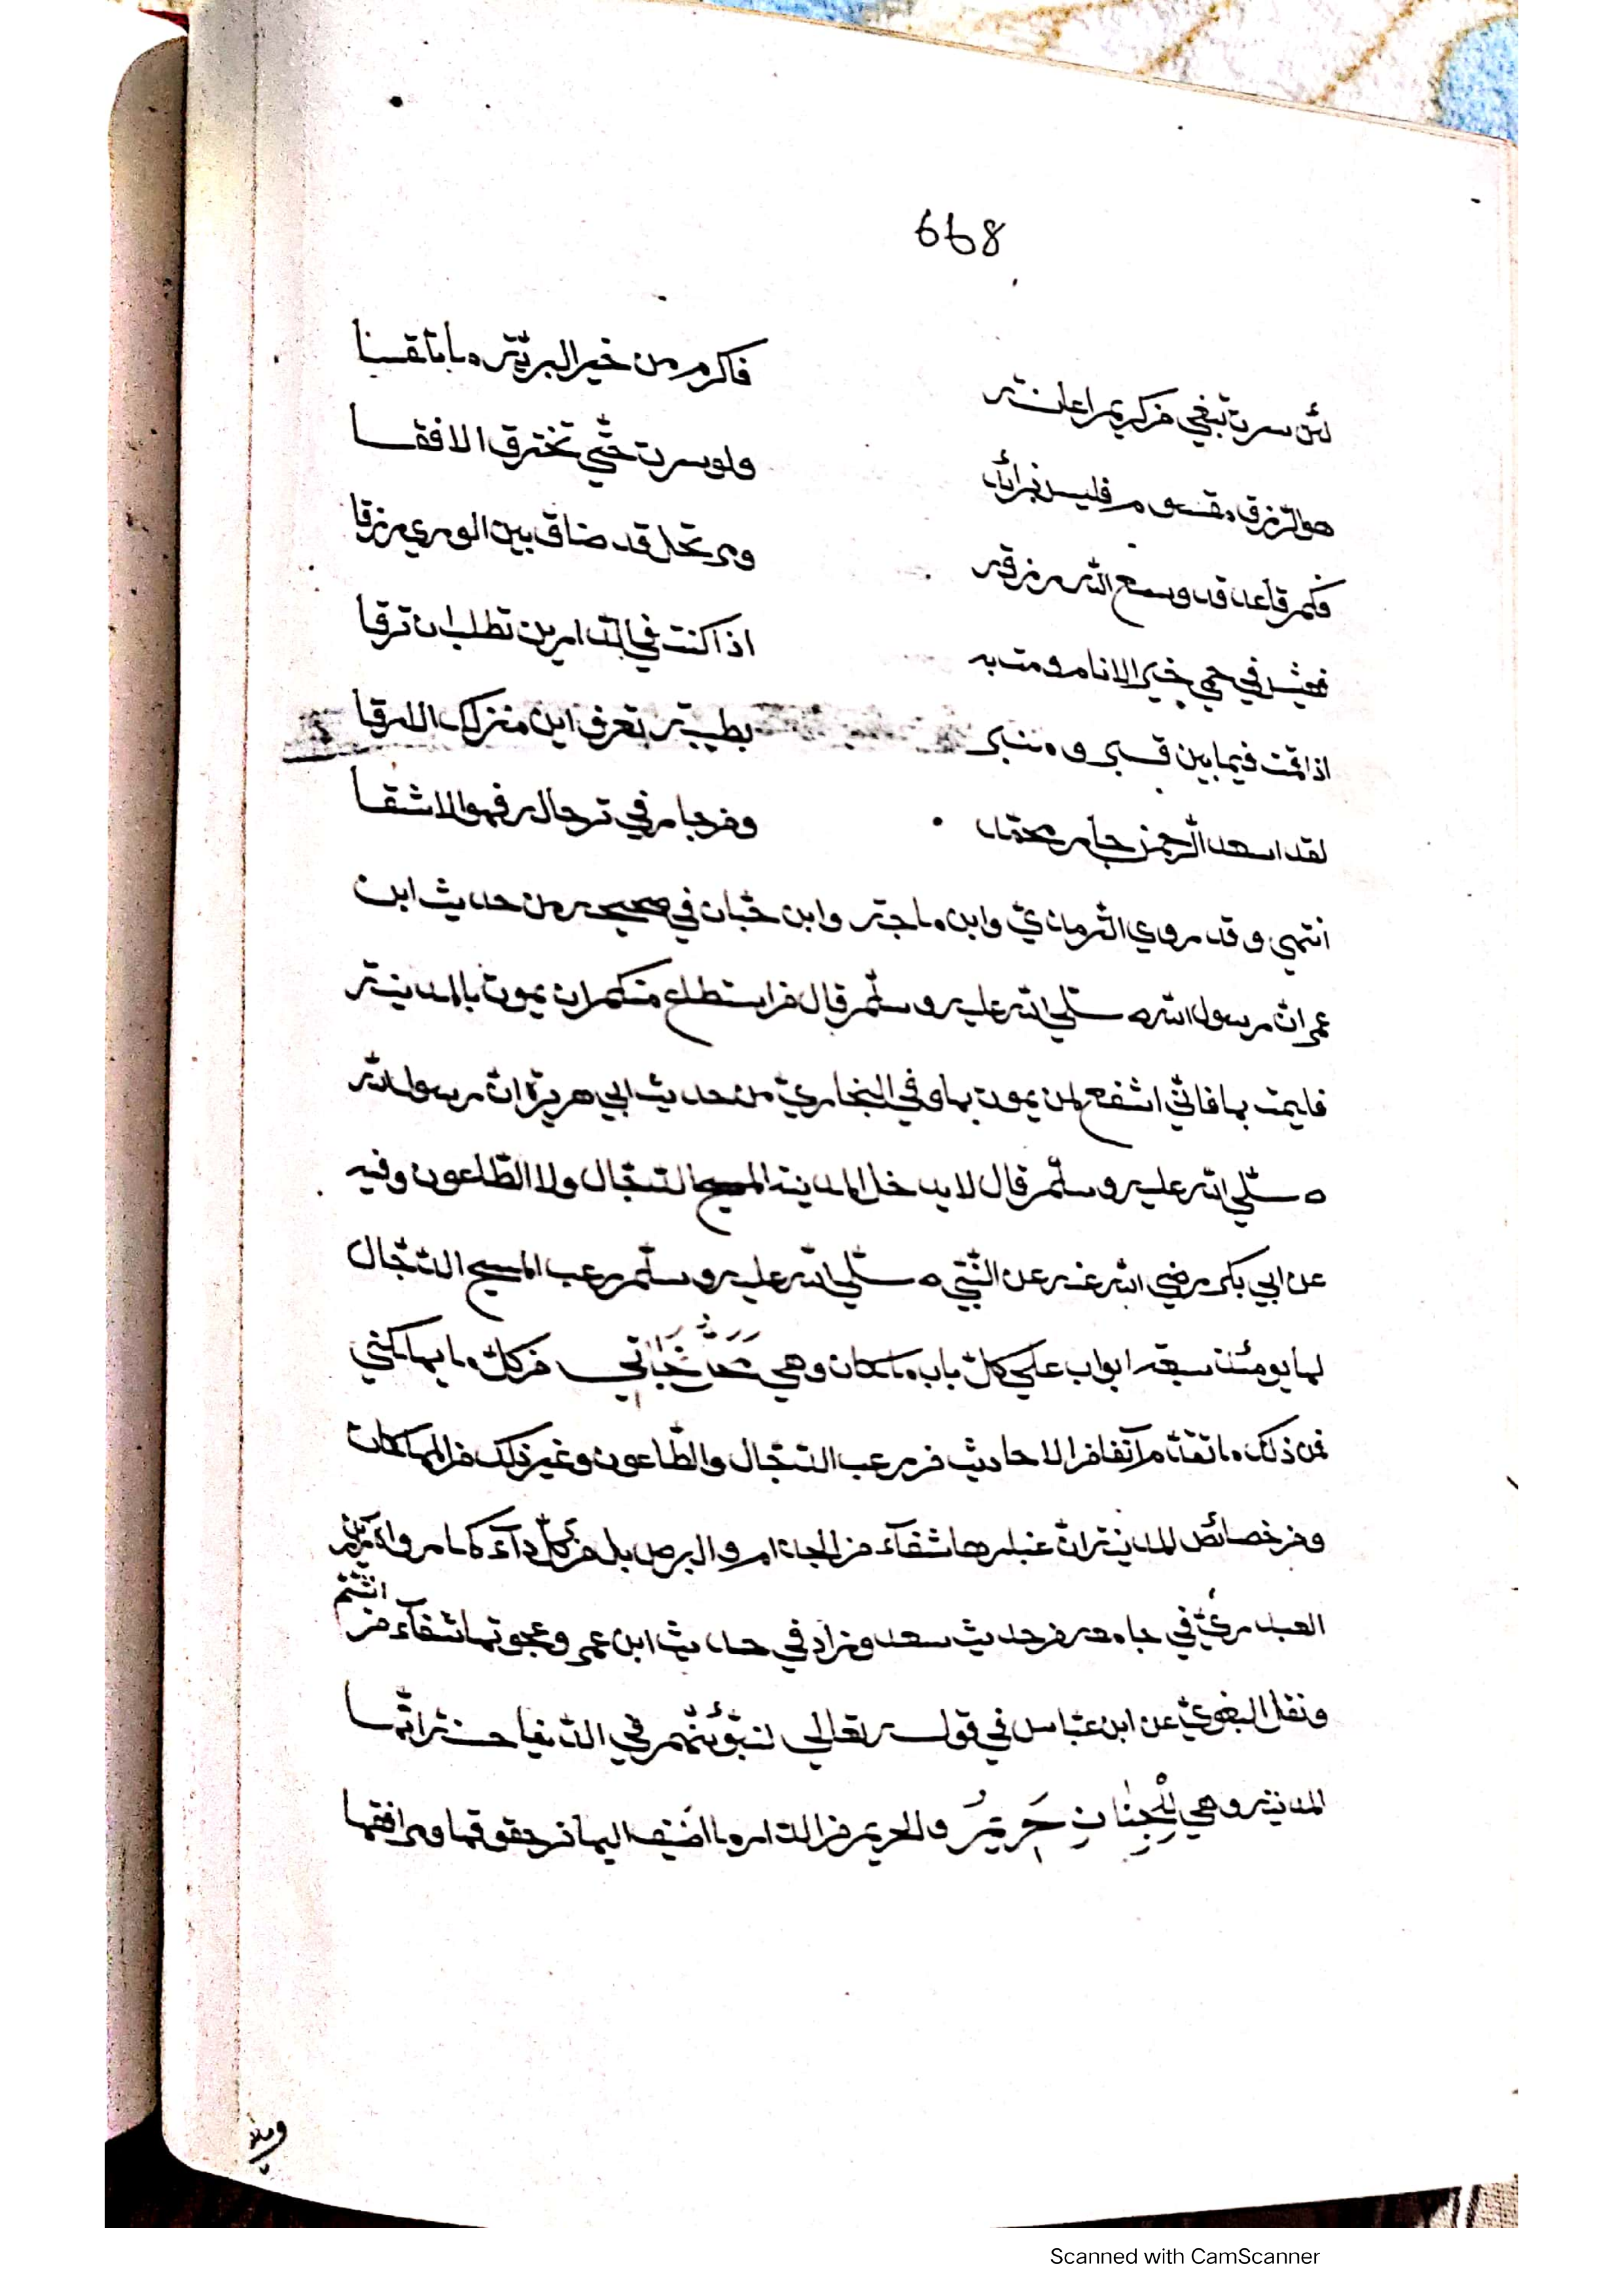 668
لئن سرت تبغي من كريم اعانة فاكرم من خير البرية ما تقنا
هو الرزق مقسوم فليس بزائد ولو سرت حتي تخترق الافقا
فكم قاعد قد وسع الله رزقه ومرتحل قد ضاق بين الوري رزقا
فعش في حمي خير الانام ومت به اذا كنت في الدارين تطلب ان ترقا
اذا قمت فيما بين قبر ومنبر بطيبة تعرف اين منزلك الارقا
لقد اسعد الرحمن جار محمد ومن جار في ترحاله فهو الاشقا
انتهي وقد روي الترمذي وابن ماجة وابن حبان في صحيحه من حديث ابن
عمر ان رسول الله صلي الله عليه وسلم قال من استطاع منكم ان يموت بالمدينة
فليمت بها فاني اشفع لمن يموت بها وفي البخاري من حديث ابي هريرة ان رسول الله
صلي الله عليه وسلم قال لا يدخل المدينة المسيح الدجال ولا الطاعون وفيه
عن ابي بكر رضي الله عنه عن النبي صلي الله عليه وسلم رعب المسيح الدجال
لها يومئذ سبعة ابواب علي كل باب ملكان وهي من كل ما بها
فمن ذلك ما تقدم آنفا من الاحاديث من رعب الدجال والطاعون وغير ذلك من المهلكات
ومن خصائص المدينة ان غبارها شفآء من الجذام والبرص بل من كل دآء كما رواه رزين
العبدري في جامعه من حديث سعد وزاد في حديث ابن عمر وعجوتها شفآء من السم
ونقل البغوي عن ابن عباس في قوله تعالي لنبوئنهم في الدنيا حسنة انها
المدينة وهي للجنان حريم والحريم من الدار ما اضيف اليها من حقوقها ومرافقها